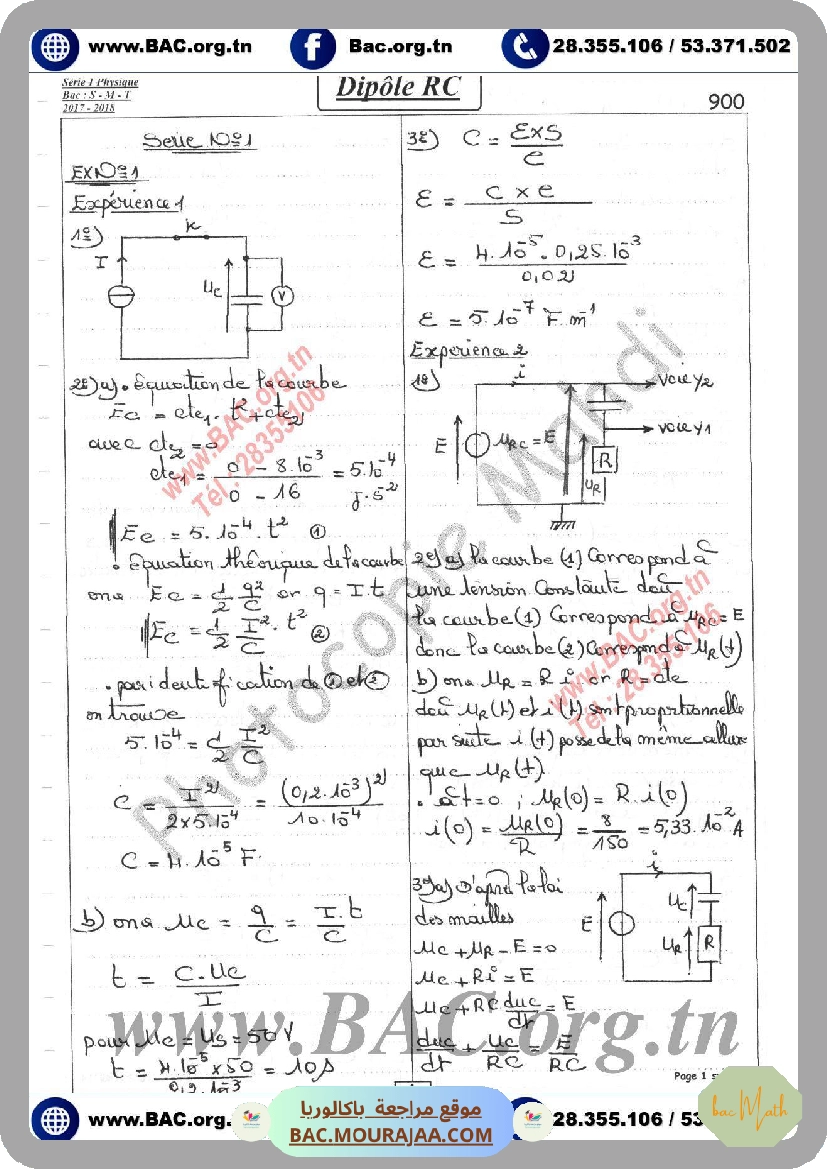 www.BAC.org.tn
Bac.org.tn
28.355.106 / 53.371.502
Serie 1 Physique
Bac : S - M - T
2017 - 2018
Dipôle RC
900
Serie N°1
EXN°1
Expérience 1
1°)
K
I
Uc
V
2°) a) • Equation de la courbe
Ec = cte1 . t² + cte2
avec cte2 = 0
cte1 = (0 - 8.10⁻³) / (0 - 16) = 5.10⁻⁴ J.s⁻²
Ec = 5.10⁻⁴ . t² ①
• Equation théorique de la courbe
ona Ec = 1/2 q²/C or q = I.t
Ec = 1/2 I²/C . t² ②
. par identification de ① et ②
on trouve
5.10⁻⁴ = 1/2 I²/C
C = I² / (2x5.10⁻⁴) = (0,2.10⁻³)² / 10.10⁻⁴
C = 4.10⁻⁵ F.
b) ona Uc = q/C = I.t/C
t = C.Uc / I
pour Uc = Us = 50V
t = (4.10⁻⁵ x 50) / 0,2.10⁻³ = 10s
3°) C = ƐxS / e
Ɛ = C x e / S
Ɛ = 4.10⁻⁵ . 0,25.10⁻³ / 0,02
Ɛ = 5.10⁻⁷ F.m⁻¹
Experience 2
1°)
i
voie Y2
voie Y1
E
URC = E
R
UR
2°) a) la courbe (1) Correspond à
une tension Constante doù
la courbe (1) Correspond à URC = E
donc la courbe (2) Correspond à UR(t)
b) ona UR = Ri or R = cte
doù UR(t) et i(t) sont proprtionnelle
par suite i(t) posse de la même allure
que UR(t).
• à t=0 ; UR(0) = R.i(0)
i(0) = UR(0)/R = 8/150 = 5,33.10⁻² A
3°) a) D'après la loi
des mailles
Uc + UR - E = 0
Uc + Ri = E
Uc + RC duc/dt = E
duc/dt + Uc/RC = E/RC
i
E
Uc
UR
R
Photocopie Mahdi
www.BAC.org.tn
Tel : 28355106
www.BAC.org.tn
Tel : 28.355.106
www.BAC.org.tn
Page 1
www.BAC.org.
موقع مراجعة باكالوريا
BAC.MOURAJAA.COM
28.355.106 / 53
bac Math